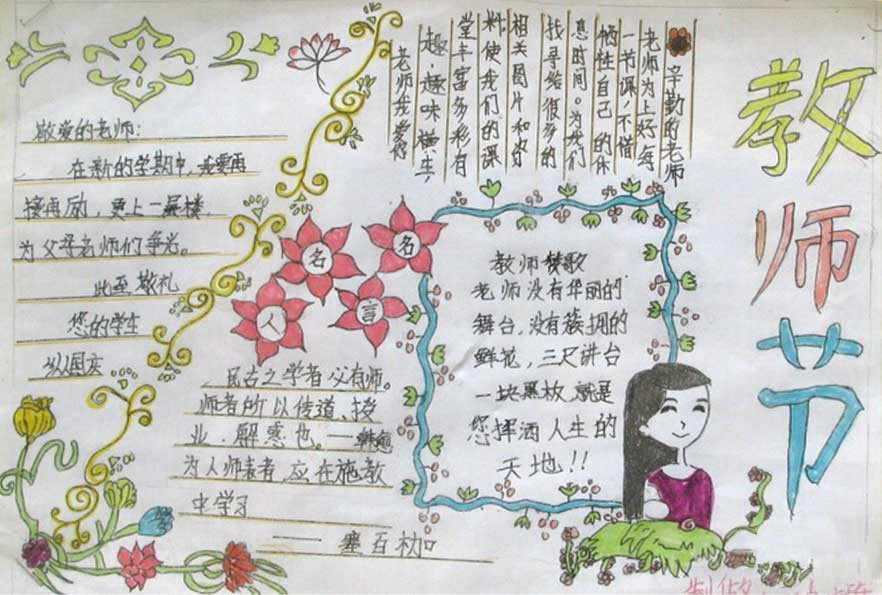 教师节
辛勤的老师
老师为上好每
一节课，不惜
牺牲自己的休
息时间。为我们
找寻给很多的
相关图片和资
料，使我们的课
堂丰富多彩有
趣，趣味横生，
老师我爱你
敬爱的老师：
在新的学期中，我要再
接再励，更上一层楼，
为父母老师们争光。
此至敬礼
您的学生
名人名言
古之学者必有师。
师者所以传道、授
业、解惑也。——韩愈
为人师表者，应在施教
中学习
——塞
教师赞歌
老师没有华丽的
舞台，没有簇拥的
鲜花，三尺讲台
一块黑板，就是
您挥洒人生的
天地！！
制作